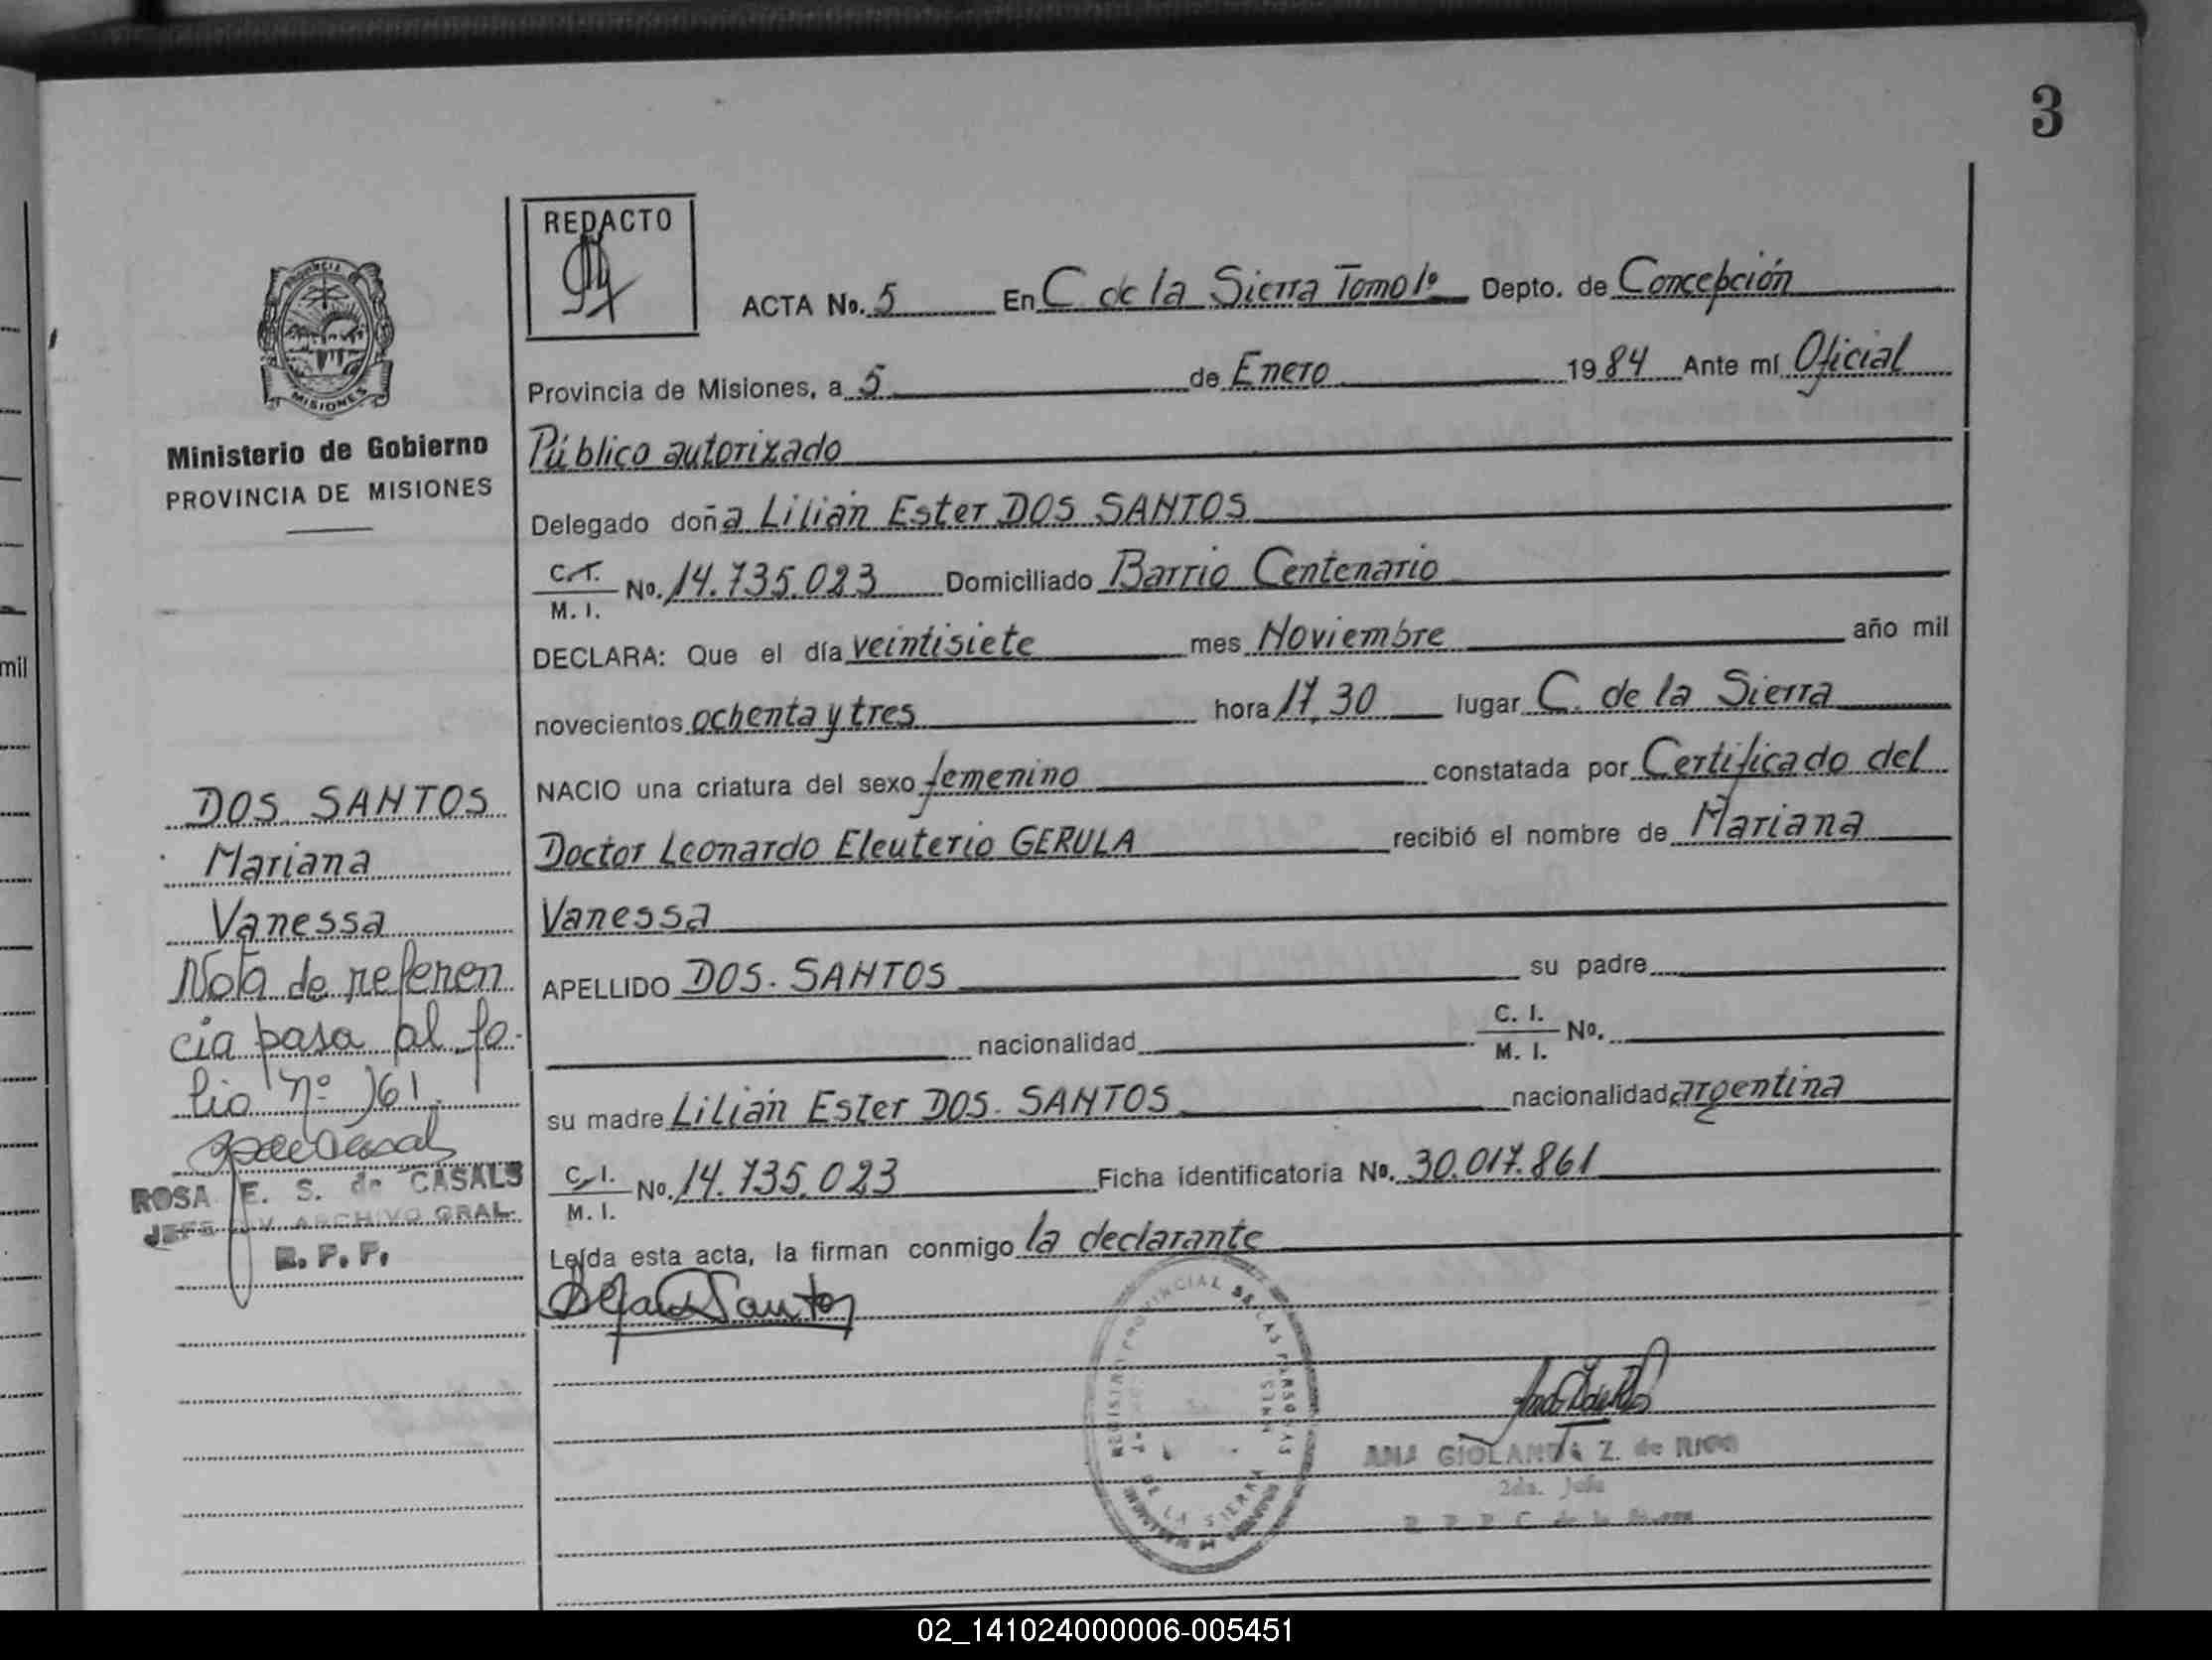 3
REDACTO
ACTA No. 5 En C de la Sierra Tomo 1º Depto. de Concepción
Provincia de Misiones, a 5 de Enero 1984 Ante mí Oficial
Público autorizado
Delegado doña Lilian Ester DOS SANTOS
C.I. M. I. No. 14.735.023 Domiciliado Barrio Centenario
DECLARA: Que el día veintisiete mes Noviembre año mil
novecientos ochenta y tres hora 17,30 lugar C. de la Sierra
NACIO una criatura del sexo femenino constatada por Certificado del
Doctor Leonardo Eleuterio GERULA recibió el nombre de Mariana
Vanessa
APELLIDO DOS. SANTOS su padre
nacionalidad C. I. M. I. No.
su madre Lilian Ester DOS. SANTOS nacionalidad argentina
C. I. M. I. No. 14.735.023 Ficha identificatoria No. 30.017.861
Leída esta acta, la firman conmigo la declarante
PROVINCIA
MISIONES
Ministerio de Gobierno
PROVINCIA DE MISIONES
DOS. SANTOS
Mariana
Vanessa
Nota de referen
cia pasa al fo-
lio nº 161
ROSA E. S. de CASALS
JEFE DIV ARCHIVO GRAL.
R. P. P.
REGISTRO PROVINCIAL DE LAS PERSONAS
DE LA SIERRA
ANA GIOLANDA Z. de RICO
2da. Jefe
R. P. P. C. de la Sierra
mil
02_141024000006-005451